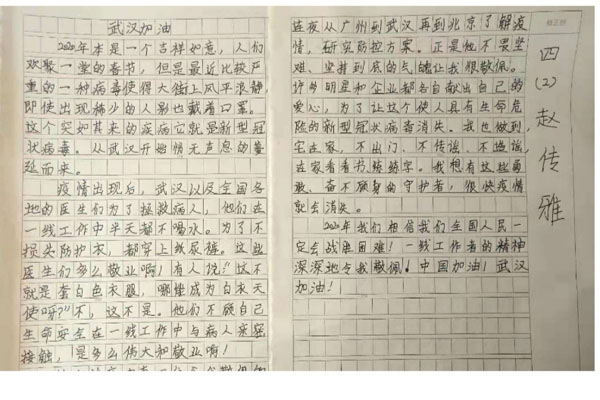 武汉加油
2020年本是一个吉祥如意，人们
欢聚一堂的春节，但是最近比较严
重的一种病毒使得大街上风平浪静，
即使出现稀少的人影也戴着口罩。
这个突如其来的疾病它就是新型冠
状病毒。从武汉开始悄无声息的蔓
延而来。
疫情出现后，武汉以及全国各
地的医生们为了拯救病人，他们在
一线工作中半天都不喝水。为了不
损失防护衣，都穿上纸尿裤。这些
医生们多么敬业啊！有人说："这不
就是套白色衣服，哪烂成为白衣天
使呀？"不，这不是。他们不顾自己
生命安全在一线工作中与病人亲密
接触，是多么伟大和敬业啊！
连夜从广州到武汉再到北京了解疫
情，研究防控方案。正是他不畏坚
难、坚持到底的气魄让我很敬佩。
许多明星和企业都各自献出自己的
爱心，为了让这个使人具有生命危
险的新型冠状病毒消失。我也做到，
宅在家，不出门、不传谣、不造谣，
在家看看书，练练字。我想有这些勇
敢、奋不顾身的守护者，很快疫情
就会消失。
2020年我们相信我们全国人民一
定会战胜困难！一线工作者的精神
深深地令我敬佩！中国加油！武汉
加油！
四(2)赵传雅